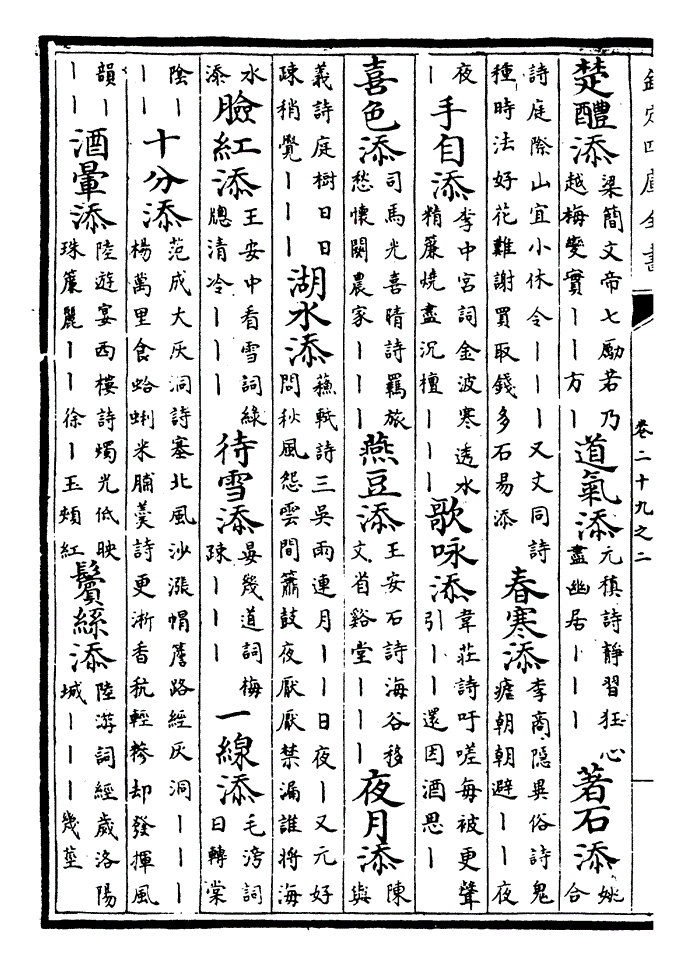 欽定四庫全書
卷二十九之二
楚醴添
梁簡文帝七勵若乃
越梅爕實丨丨方丨
道氣添
元稹詩靜習狂心
盡幽居丨丨丨
著石添
姚
合
詩庭際山宜小休令丨丨丨又文同詩
種時法好花難謝買取錢多石易添
春寒添
李商隱異俗詩鬼
瘧朝朝避丨丨夜
夜
丨
手自添
李中宮詞金波寒透水
精簾燒盡沉檀丨丨丨
歌咏添
韋莊詩吁嗟每被更聲
引丨丨還因酒思丨
喜色添
司馬光喜晴詩羈旅
愁懷闕農家丨丨丨
燕豆添
王安石詩海谷移
文省谿堂丨丨丨
夜月添
陳
與
義詩庭樹日日
疎稍覺丨丨丨
湖水添
蘇軾詩三吳雨連月丨丨日夜丨又元好
問秋風怨雲間簫鼓夜厭厭禁漏誰將海
水
添
臉紅添
王安中看雪詞綠
牕清冷丨丨丨
待雪添
晏幾道詞梅
疎丨丨丨
一線添
毛滂詞
日轉棠
陰丨
丨丨
十分添
范成大灰洞詩塞北風沙漲帽簷路經灰洞丨丨丨
楊萬里食蛤蜊米脯羹詩更淅香秔輕糝却發揮風
韻丨
丨丨
酒暈添
陸遊宴西樓詩燭光低映
珠簾麗丨丨徐丨玉頰紅
鬢絲添
陸游詞經歲洛陽
城丨丨丨幾莖